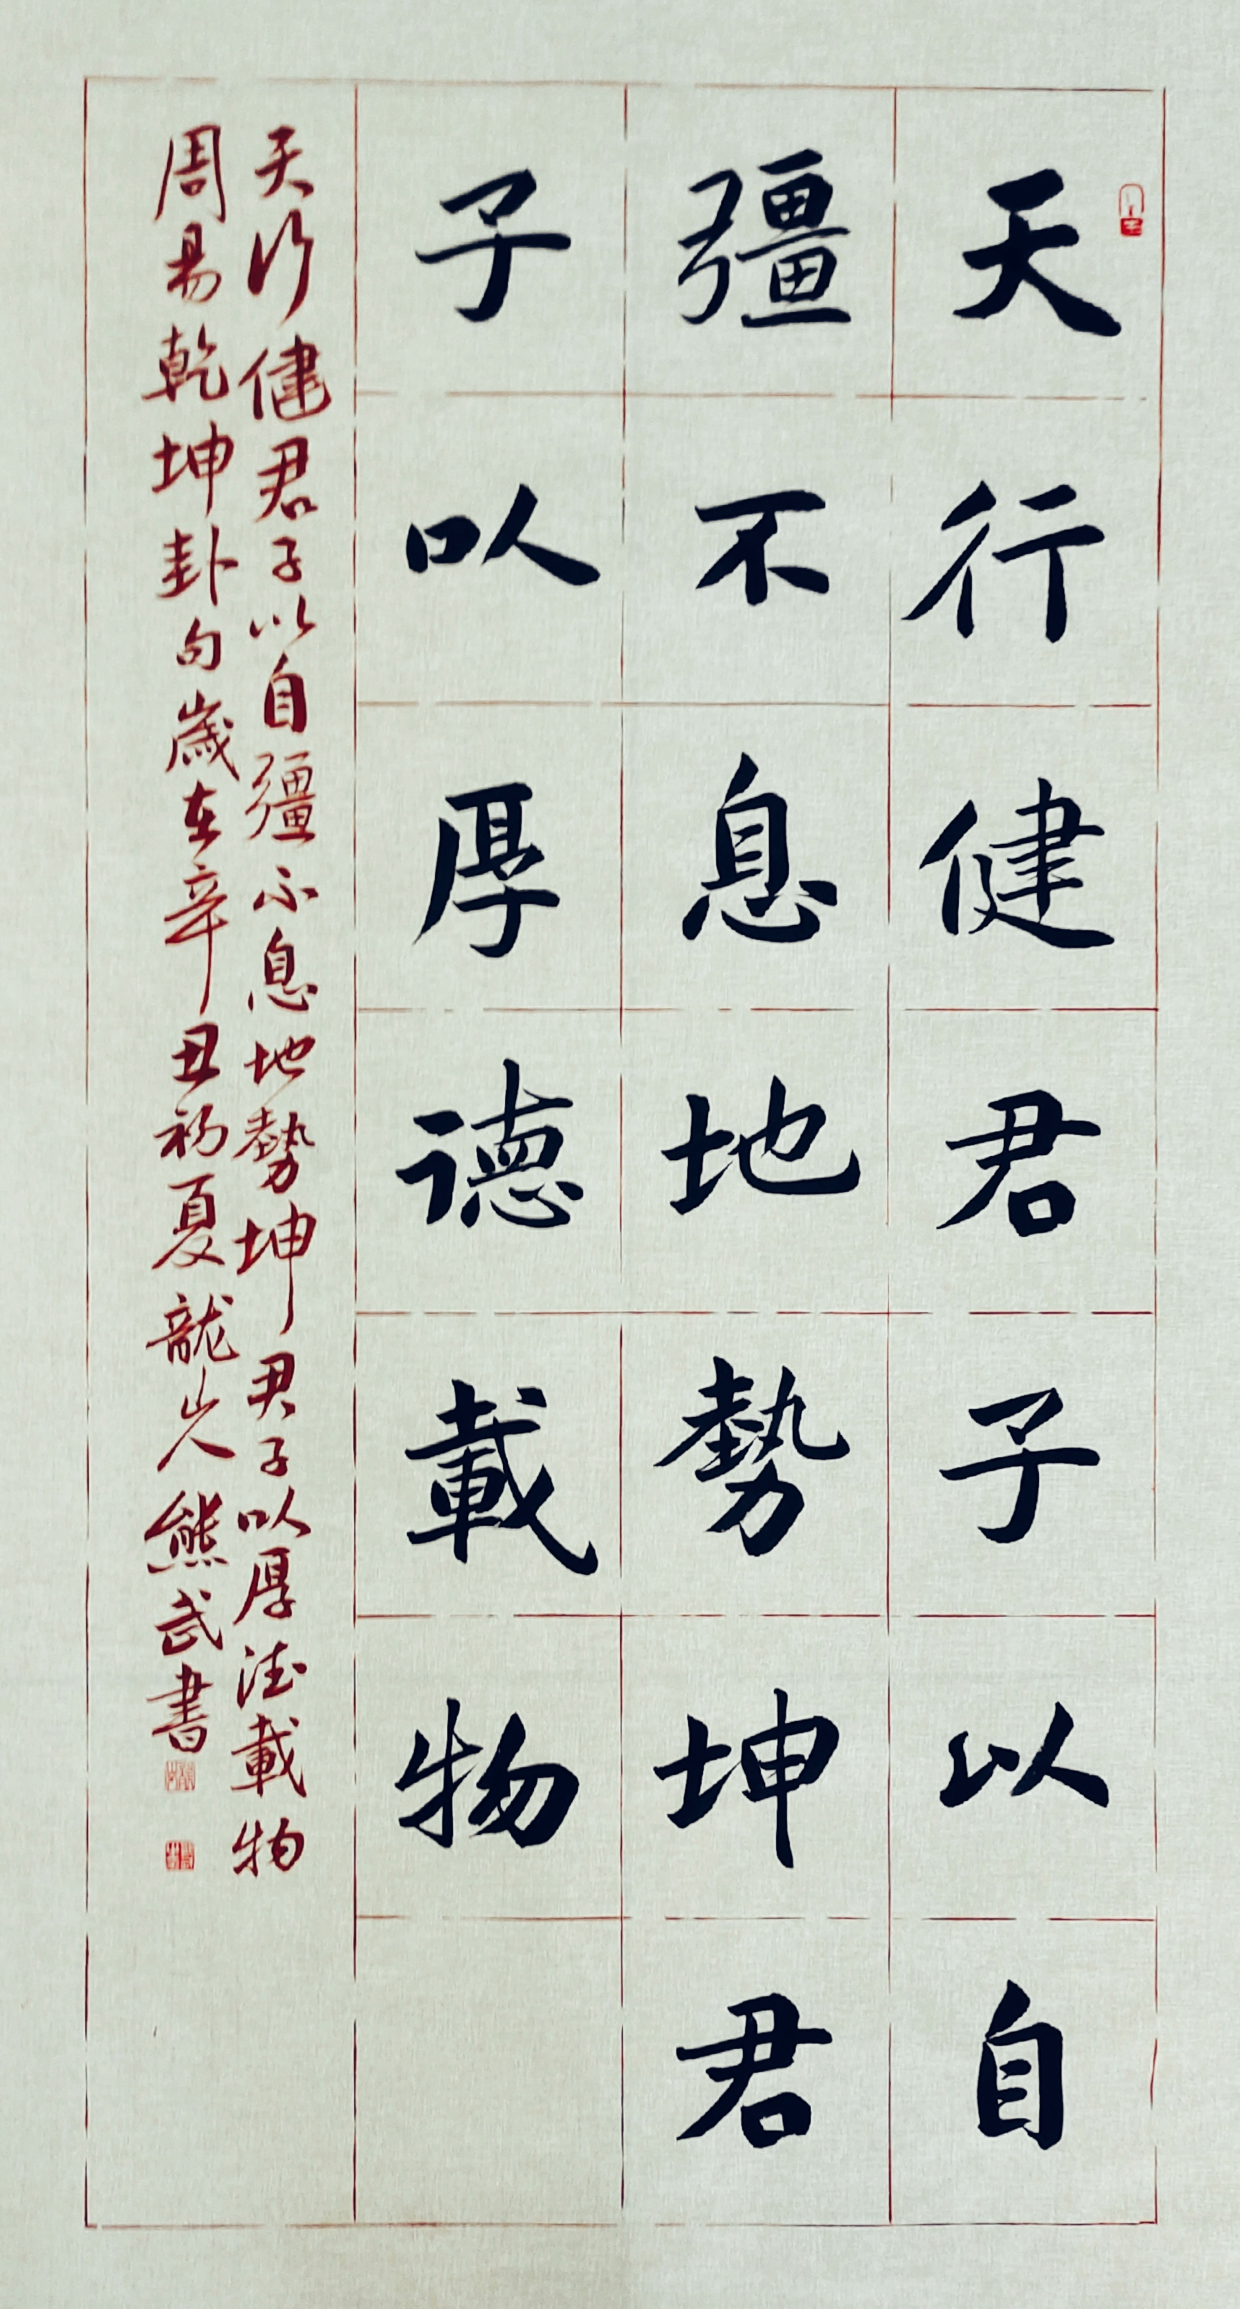 天行健君子以自
彊不息地勢坤君
子以厚德載物
天行健君子以自彊不息地勢坤君子以厚德載物
周易乾坤卦句歲在辛丑初夏龍山人熊武書